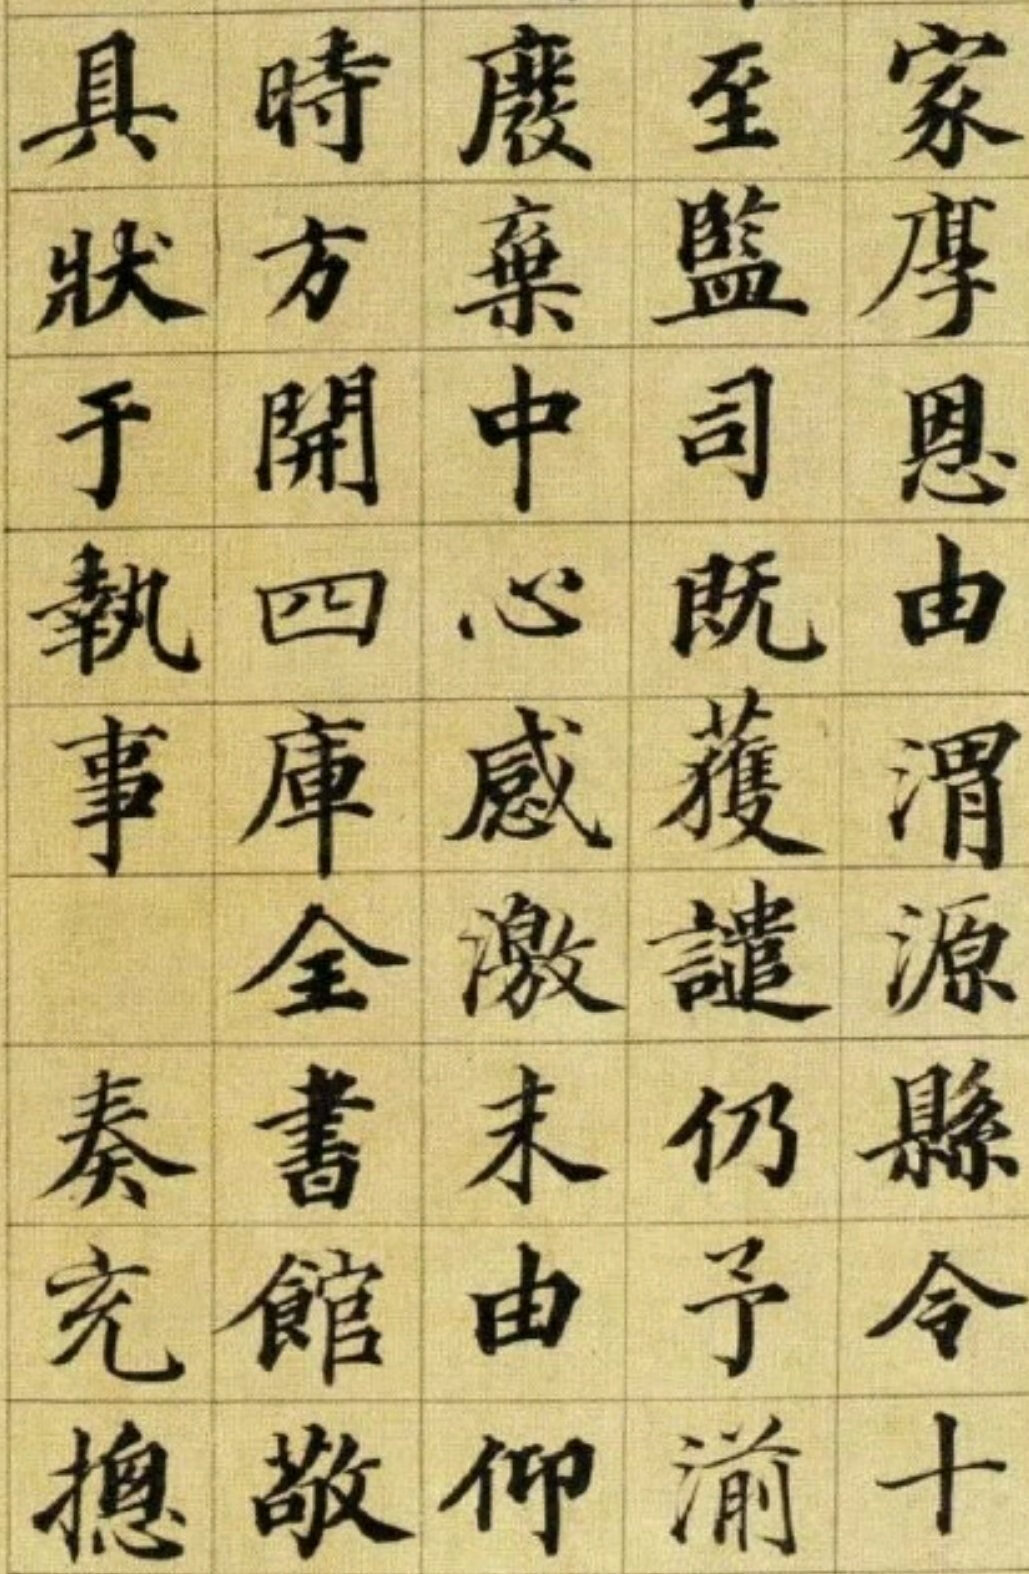 家厚恩由渭源縣令十
至監司既獲譴仍予湔
廢棄中心感激末由仰
時方開四庫全書館敬
具狀于執事 奏充摠